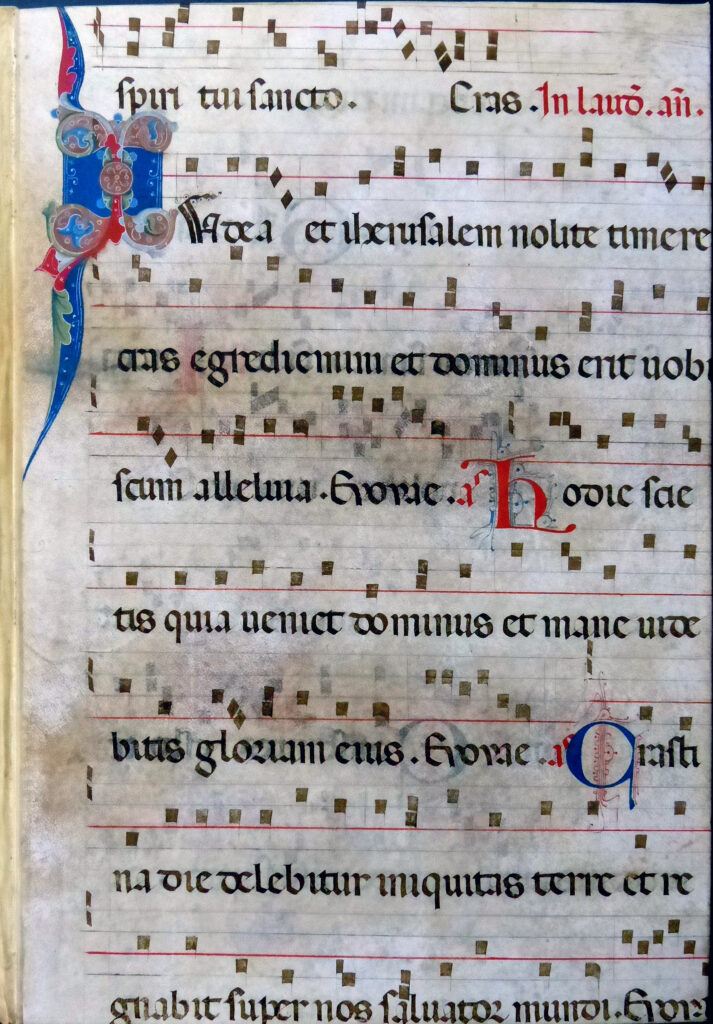 spiri tui sancto. Cras. In laud. an.
Iudea et iherusalem nolite timere
cras egrediemini et dominus erit uobi
scum alleluia. Evovae. an Hodie scie
tis quia ueniet dominus et mane uide
bitis gloriam eius. Evovae. an Crasti
na die delebitur iniquitas terre et re
gnabit super nos saluator mundi. Evov